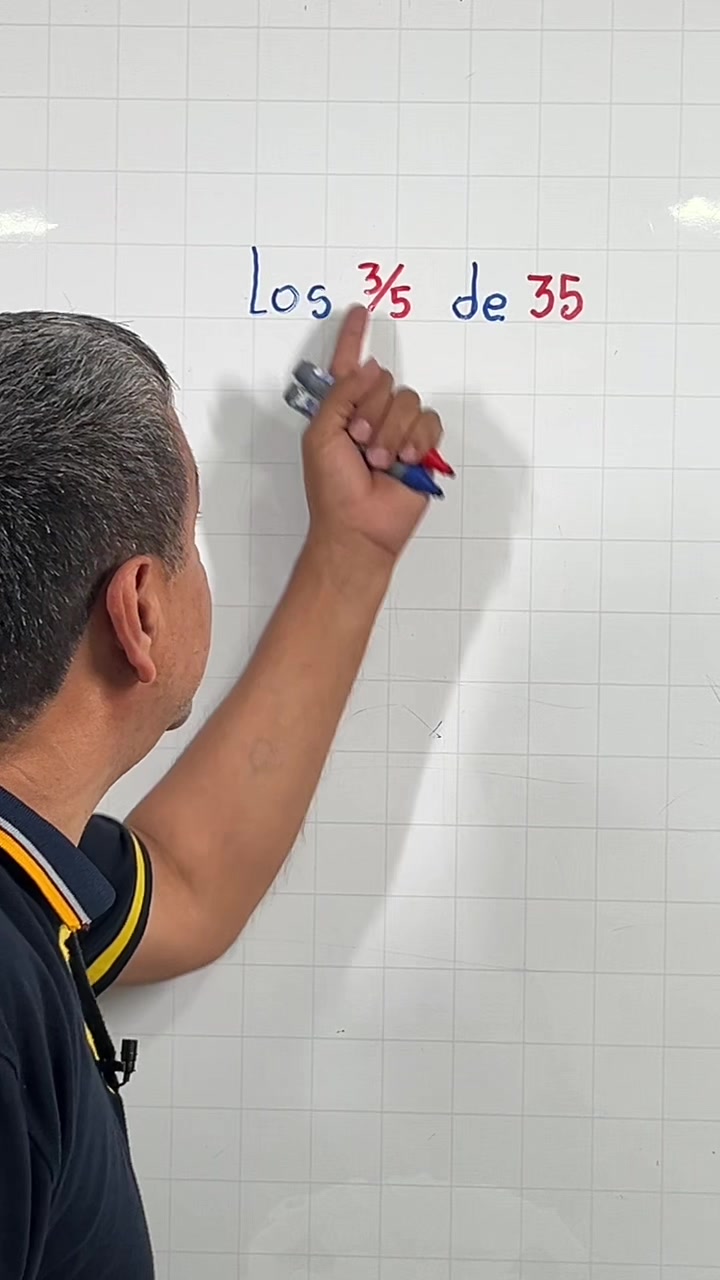 Los 3/5 de 35